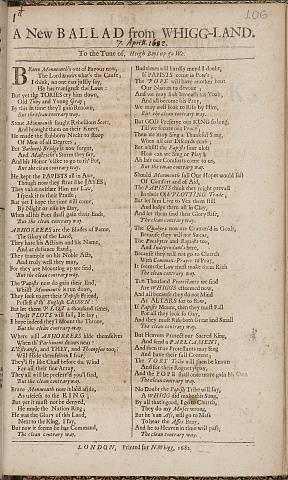 106
1st
A New BALLAD from WHIGG-LAND.
7. April. 1682.
To the Tune of, Heigh Boys up go We.
BRave Monmouth's out of Favour now,
The Lord knows what's the Cause,
I think, no one can justly say,
He has transgrest the Laws:
But yet the TORIES cry him down,
Old Toby and Young Gray;
By this in time they'l gain Renown,
But the clean contrary way.
Some Monmouth fought Rebellious Scots,
And brought them on their Knees,
He made the Rubborn Necks to stoop
Of Men of all Degrees,
But Bothwel-Bridge is now forgot,
And Mastricht's Sieres they say,
And his Honor's like to go to Pot,
But the clean contrary way.
He hopt the PAPISTS at a Bay,
Though now they slight his PAWS;
They value neither Him nor Law,
I speak it to their Praise:
But yet I hope the time will come,
By Night or else by Day,
When all his Foes shall gain their Ends,
But the clean contrary way.
ABHORRERS are the Blades of Fame,
The Glory of the Land;
They hate his Actions and his Name,
And at defiance stand;
They trample on his Noble Acts,
And truly well they may,
For they are Mounting up we find,
But the clean contrary way.
The Papists now do gain their End,
Whilst Monmouth is run down,
They seek to get their Popish Friend,
Possest of th' English CROWN:
But let them PLOT a thousand times,
Their PLOTS will fail, He lay
I know they strongly Mount the Throne,
But the clean contrary way.
Where all ABHORRERS like themselves
When th' Parliament do not near:
L'Estrange, and THEY, and Thompson too;
Will Hide themselves I fear;
They'l be Just Chast before the Wind
For all their fine Array,
They all will be preferr'd you'l find,
But the clean contrary way.
Brave Monmouth now is laid aside,
As useless to the KING,
But yet it must not be denyed,
He made the Nation Ring;
He was the Glory of this Land,
Next to the King, I say,
But now it seems he has Command,
The clean contrary way.
Bad News will hardly mend I doubt,
If PAPISTS come in Power;
The POPE will have another bout
Our Nation to devour
And we may bask beneath his Yoak,
And all become his Prey,
We may as soon to Rise by Him,
But the clean contrary way.
But GOD Preserve our KING so long,
Till we secure our Peace,
Then we may Sing a Thankful Song,
When all our Discords cease;
But whilst the Papists thus assist
How can we Sing or Play?
Ah lash our Conduct come to us,
But the clean contrary way.
Should Monmouth fall Our Hopes would fail
Of Comfort and of Aid,
The PAPISTS think they might prevail
In their CRAFTY PLOTTING Trade
But let him Live to Vex them still
And Hang them in their Clay,
And let them find their Glory Rise,
The clean contrary way.
The Quakers now are Cramm'd in Goals,
Because they will not Swear,
The Presbyter and Baptists too,
And Independants here,
Because they will not go to Church
With Common-Prayer to Pray,
It seems the Law must make them Rich
The clean contrary way.
Ten Thousand Protestants we find
Are PAPISTS esteemed now,
And all because they do not Mind
At ALTARS for to Bow,
If Papists Mount, then they must Fall
For all they look so Gay,
And they must Rise both Great and Small
The clean contrary way.
But Heavens Protect our Sacred King,
And send a PARLIAMENT,
And then true Protestants may Sing
And have their full Content,
The TORY Tribe will soon be known
And for their Roguery pay,
And the POPE shall once more gain his Own
The clean contrary way.
No Doubt the Papish Tribe will say,
A WHIGG did make this Song,
By all that's good, I go to Church,
They do my Muse wrong,
But he Saw All, will go to Mass
To hear the Asses Bray,
And he to Heaven in time will pass,
The clean contrary way.
LONDON, Printed for N. Whigg, 1682.